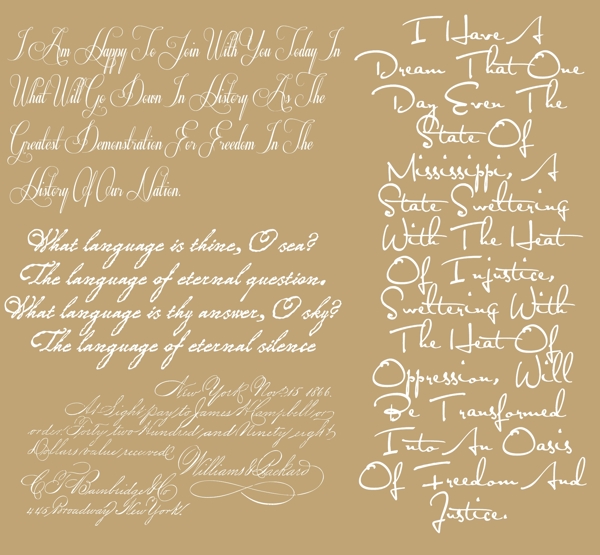 I Am Happy To Join With You Today In
What Will Go Down In History As The
Greatest Demonstration For Freedom In The
History Of Our Nation.
What language is thine, O sea?
The language of eternal question.
What language is thy answer, O sky?
The language of eternal silence
New York Nov. 15 1866.
At Sight pay to James H Campbell, or
order Forty two Hundred and Ninety eight
Dollars value received
Williams & Packard
C T Bainbridge & Co
445, Broadway New York.
I Have A
Dream That One
Day Even The
State Of
Mississippi, A
State Sweltering
With The Heat
Of Injustice,
Sweltering With
The Heat Of
Oppression, Will
Be Transformed
Into An Oasis
Of Freedom And
Justice.